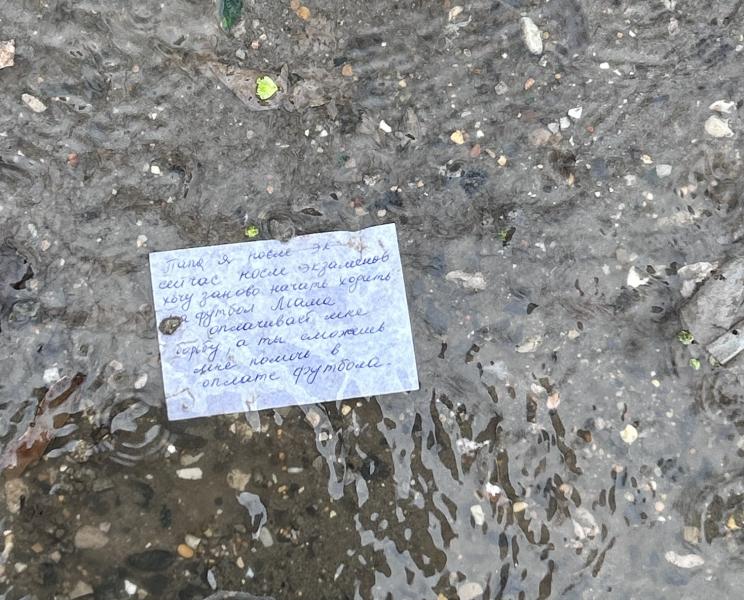 Папа я после эк
сейчас после экзаменов
хочу заново начать ходить
на футбол Мама
оплачивает мне
борьбу а ты сможешь
мне помочь в
оплате футбола.